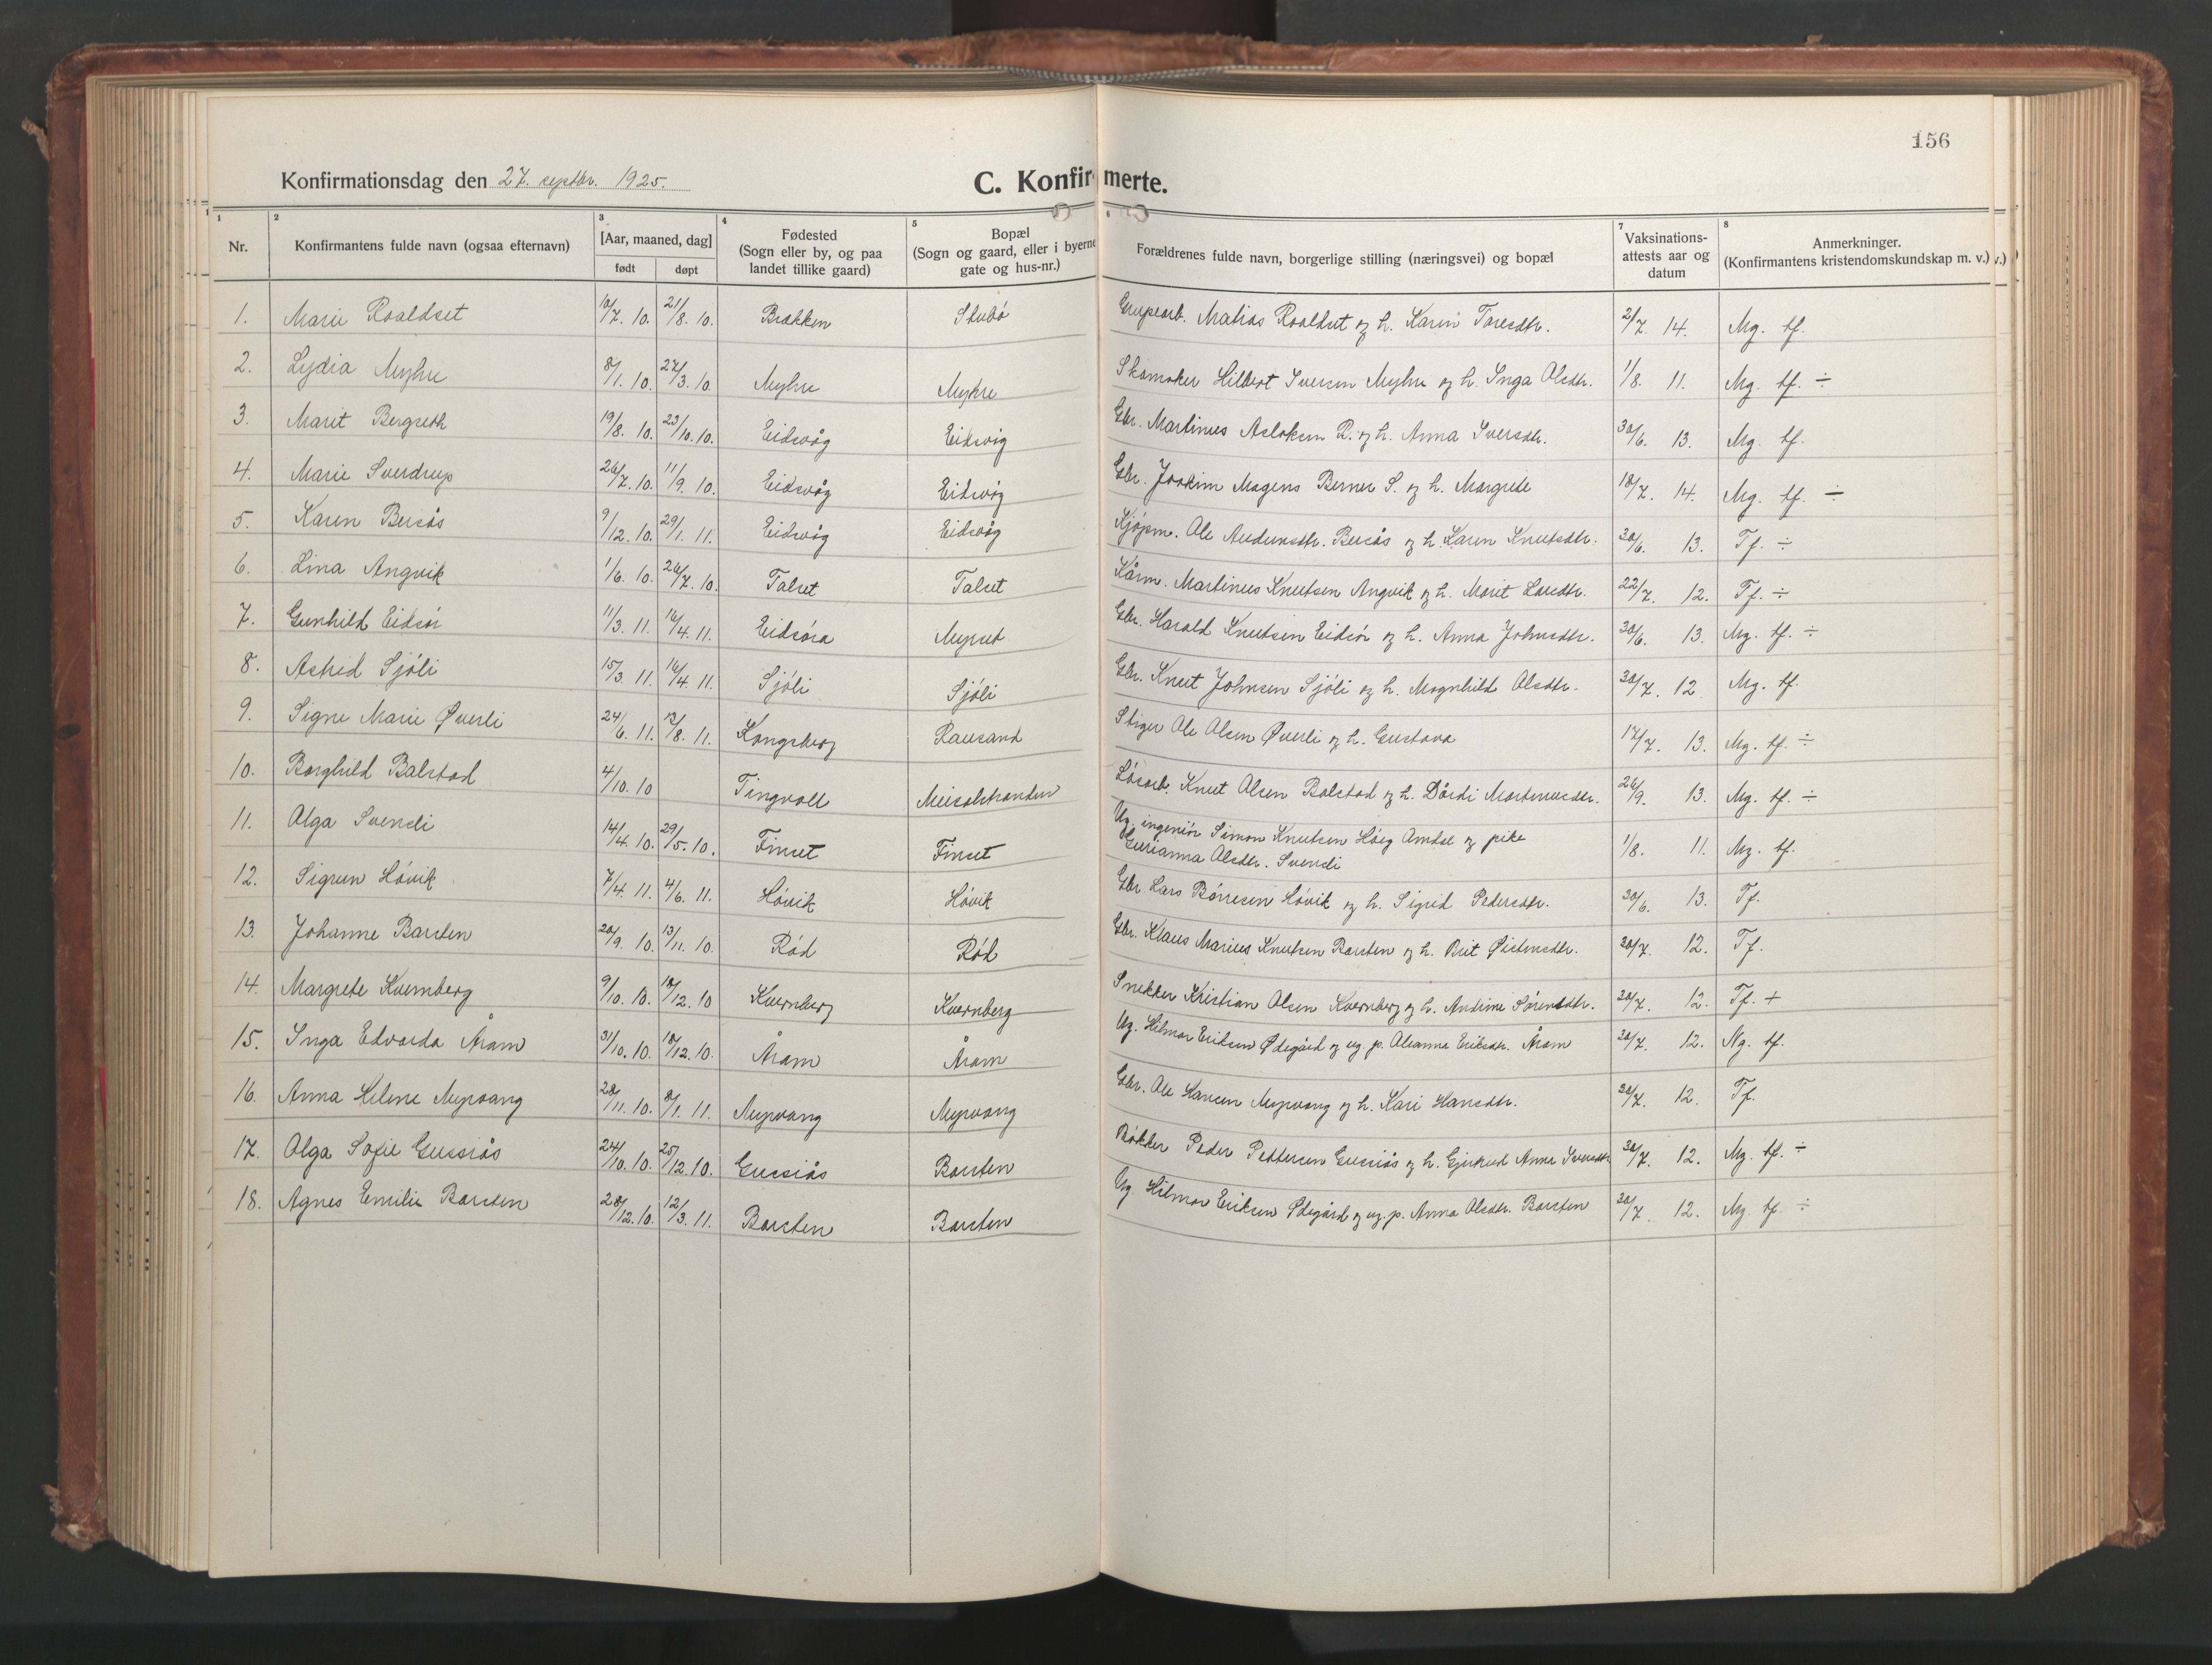 156
Konfirmationsdag den 27. septbr. 1925.
C. Konfirmerte.
1 2 3 4 5 6 7 8
Nr. Konfirmantens fulde navn (ogsaa efternavn) [Aar, maaned, dag] født døpt Fødested (Sogn eller by, og paa landet tillike gaard) Bopæl (Sogn og gaard, eller i byerne gate og hus-nr.) Forældrenes fulde navn, borgerlige stilling (næringsvei) og bopæl Vaksinations-attests aar og datum Anmerkninger. (Konfirmantens kristendomskundskap m. v.)
1. Marie Roaldset 10/7. 10. 21/8. 10. Brakken Stubø Grupearb. Matias Roaldset og h. Karen Toresdtr. 2/7. 14. Mg. tf.
2. Lydia Myhre 8/1. 10. 27/3. 10. Myhre Myhre Skomaker Hilbert Iversen Myhre og h. Inga Olsdtr. 1/8. 11. Mg. tf. ÷
3. Marit Bergseth 19/8. 10. 23/10. 10. Eidsvåg Eidsvåg Gbr. Martinus Asloksen B. og h. Anna Iversdtr. 30/6. 13. Mg. tf.
4. Marie Sverdrup 26/7. 10. 11/9. 10. Eidsvåg Eidsvåg Gbr. Joakim Magens Berner S. og h. Margrete 18/7. 14. Mg. tf. ÷
5. Karen Bersås 9/12. 10. 29/1. 11. Eidsvåg Eidsvåg Kjøpm. Ole Andersdtr. Bersås og h. Karen Knutsdtr. 30/6. 13. Tf. ÷
6. Lina Angvik 1/6. 10. 26/7. 10. Talset Talset Kårm. Martinus Knutsen Angvik og h. Marit Larsdtr. 22/7. 12. Tf. ÷
7. Gunhild Eidsør 11/3. 11. 16/4. 11. Eidsøra Myrset Gbr. Harald Knutsen Eidsør og h. Anna Johnsdtr. 30/6. 13. Mg. tf. ÷
8. Astrid Sjøli 15/3. 11. 16/4. 11. Sjøli Sjøli Gbr. Knut Johnsen Sjøli og h. Magnhild Olsdtr. 30/7. 12 Mg. tf.
9. Signe Marie Øverli 24/6. 11. 13/8. 11. Kongsberg Rausand Stiger Ole Olsen Øverli og h. Gustava 17/7. 13. Mg. tf. ÷
10. Borghild Balstad 4/10. 10 Tingvoll Meisalstranden Løsarb. Knut Olsen Balstad og h. Dordi Martinusdtr. 26/9. 13. Mg. tf. ÷
11. Olga Svensli 14/4. 10. 29/5. 10. Finset Finset Ug. ingeniør Simon Knutsen Høeg Amdal og pike
Gurianna Olsdtr. Svensli 1/8. 11. Mg. tf.
12. Sigrun Høvik 7/4. 11. 4/6. 11. Høvik Høvik Gbr Lars Børresen Høvik og h. Sigrid Pedersdtr. 30/6. 13. Tf.
13. Johanne Barsten 20/9. 10. 13/11. 10. Rød Rød Gbr. Klaus Marius Knutsen Barsten og h. Brit Øistensdtr. 30/7. 12. Tf.
14. Margrete Kvernberg 9/10. 10. 18/12. 10 Kvernberg Kvernberg Snekker Kristian Olsen Kvernberg og h. Andrine Sørensdtr. 30/7. 12. Tf. +
15. Inga Edvarda Åram 31/10. 10. 18/12. 10. Åram Åram Ug. Hilmar Eriksen Ødegård og ug. p. Oleanna Eriksdtr. Åram 30/7. 12. Ng. tf.
16. Anna Helene Myrvang 20/11. 10. 8/1. 11. Myrvang Myrvang Gbr. Ole Hansen Myrvang og h. Kari Hansdtr. 30/7. 12. Tf.
17. Olga Sofie Gussiås 24/10. 10. 25/12. 10. Gussiås Barsten Bøkker Peder Pettersen Gussiås og h. Gjertrud Anna Iversdtr. 30/7. 12. Mg. tf. ÷
18. Agnes Emilie Barsten 28/12. 10. 12/3. 11. Barsten Barsten Ug. Hilmar Eriksen Ødegård og ug. p. Anna Olsdtr. Barsten 30/7. 12. Mg. tf. ÷